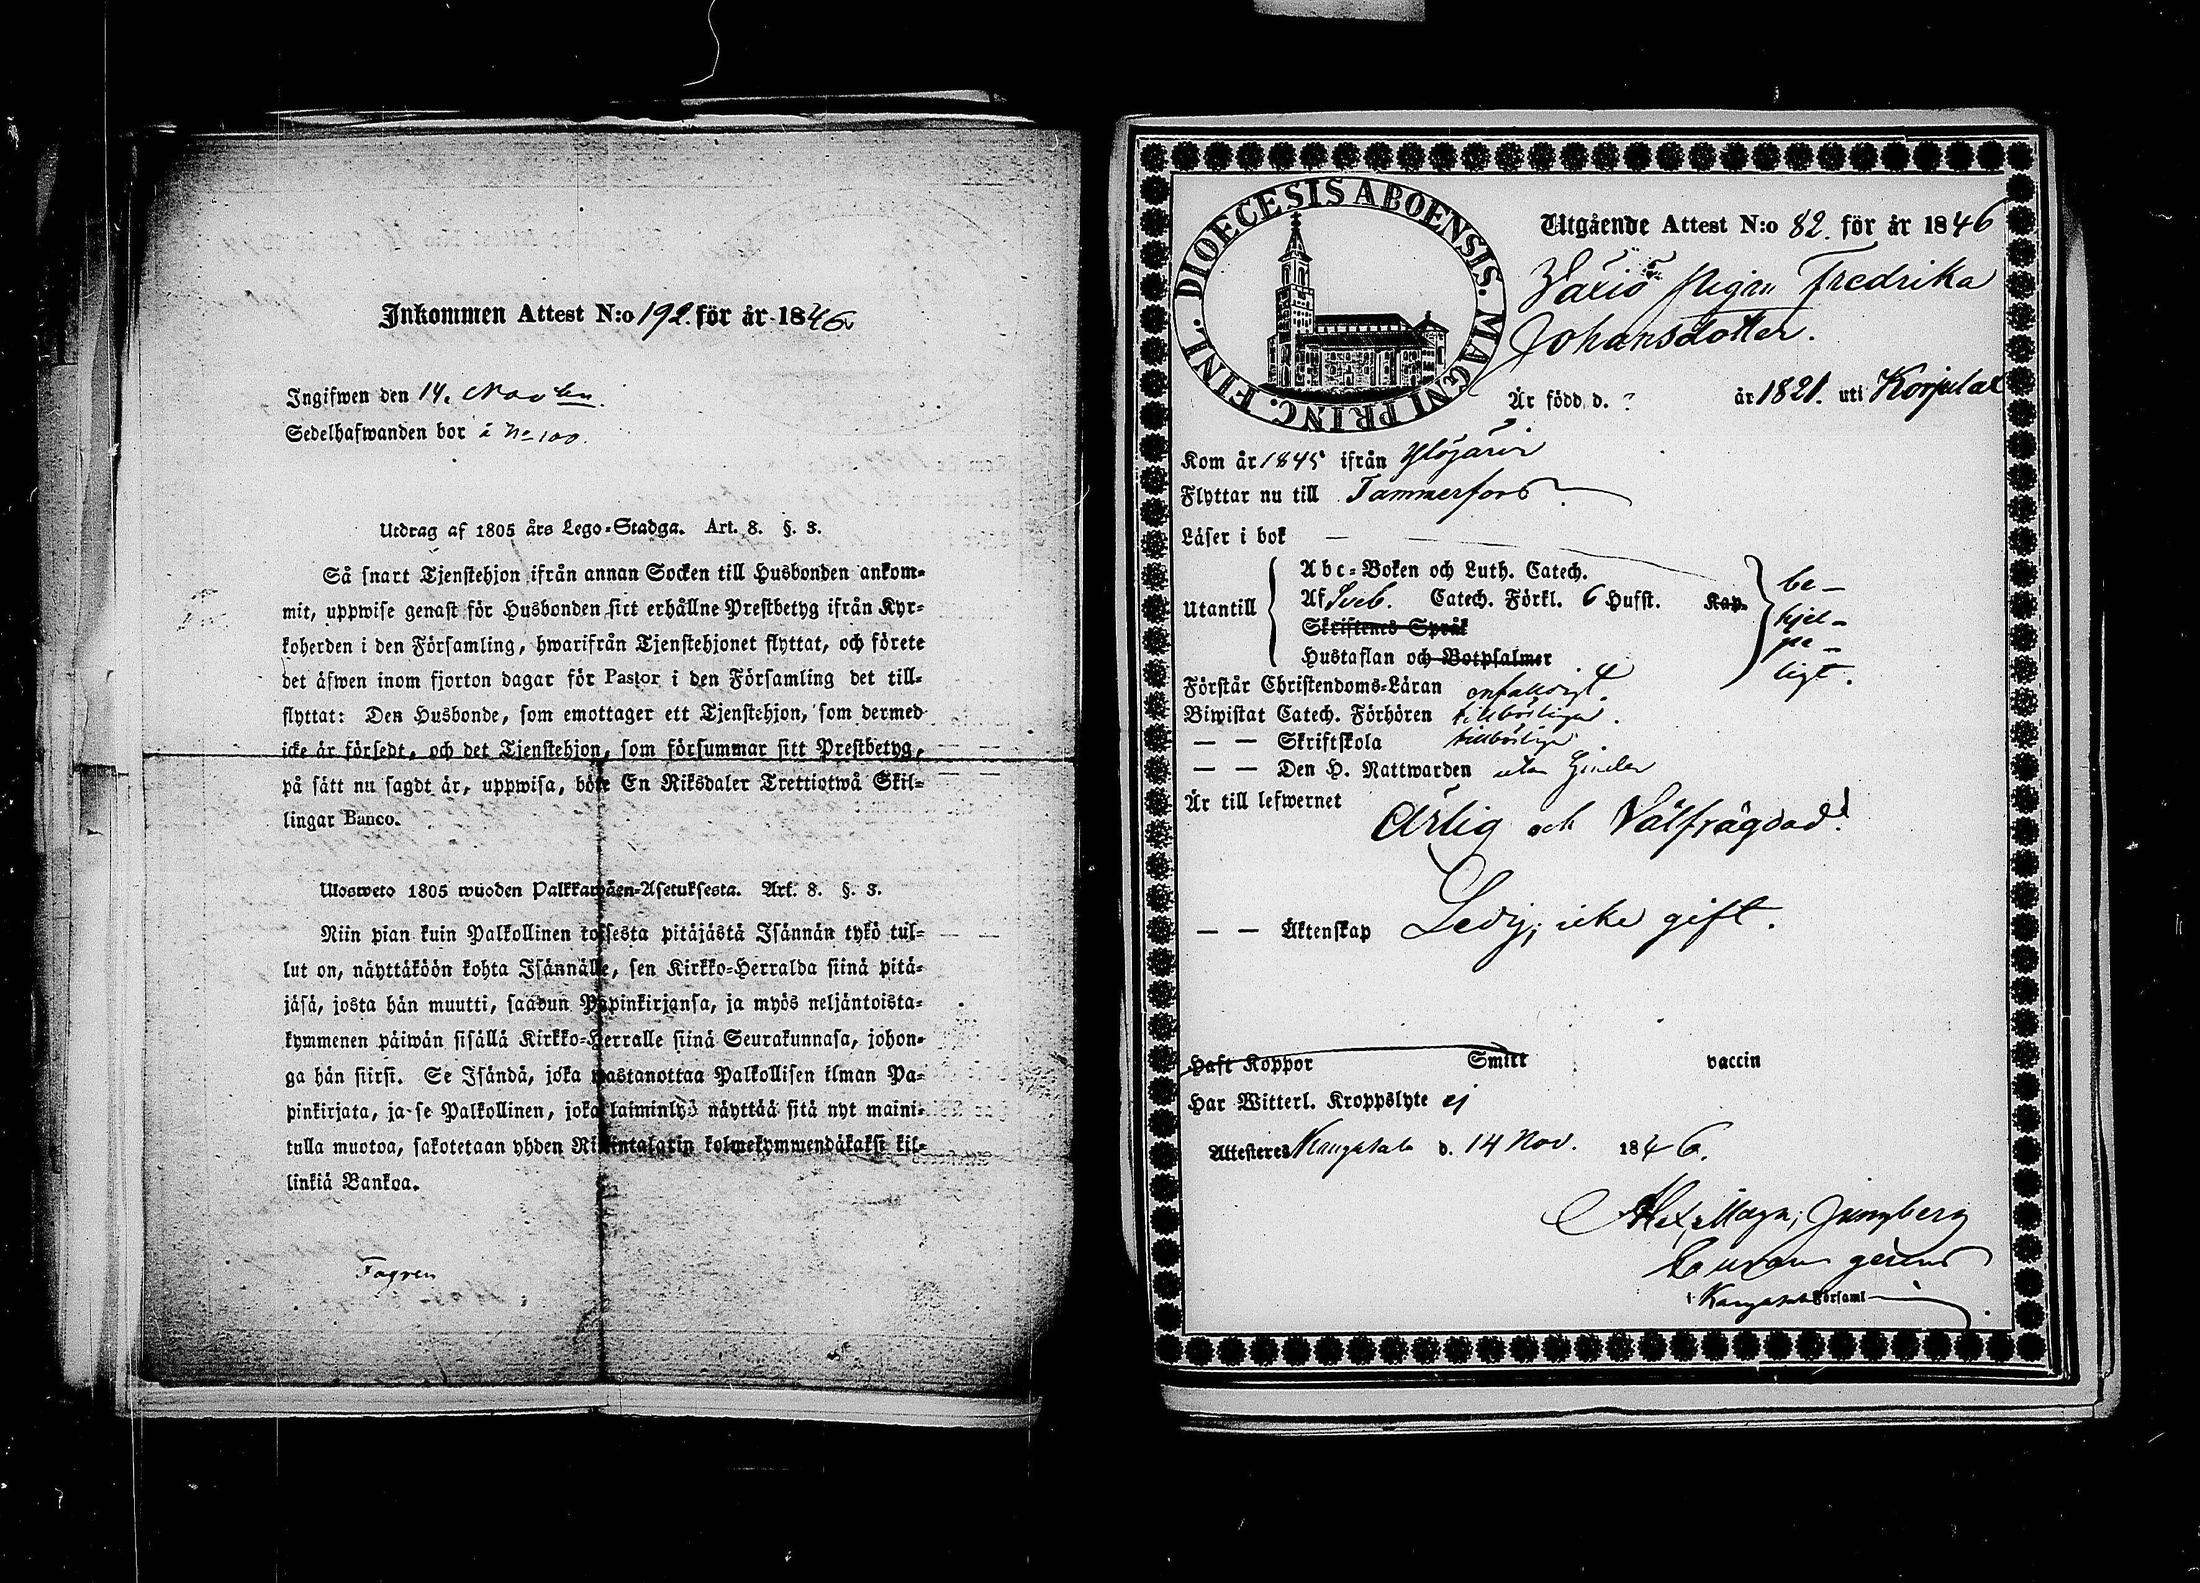 Inkommen Attest N:o 192. för år 1846.
Ingifwen den 14. Novbr.
Sedelhafwanden bor å No 100.
Utdrag af 1805 års Lego-Stadga. Art. 8. §. 3.
Så snart Tjenstehjon ifrån annan Socken till Husbonden ankom-
mit, uppwise genast för Husbonden sitt erhållne Prestbetyg ifrån Kyr-
koherden i den Församling, hwarifrån Tjenstehjonet flyttat, och förete
det äfwen inom fjorton dagar för Pastor i den Församling det till-
flyttat: Den Husbonde, som emottager ett Tjenstehjon, som dermed
icke är försedt, och det Tjenstehjon, som försummar sitt Prestbetyg,
på sätt nu sagdt är, uppwisa, böte En Riksdaler Trettiotwå Skil-
lingar Banco.
Ulosweto 1805 wuoden Palkkawäen-Asetuksesta. Art. 8. §. 3.
Niin pian kuin Palkollinen toisesta pitäjästä Isännän tykö tul-
lut on, näyttäköön kohta Isännälle, sen Kirkko-Herralda siinä pitä-
jäsä, josta hän muutti, saadun Papinkirjansa, ja myös neljäntoista-
kymmenen päiwän sisällä Kirkko-Herralle siinä Seurakunnasa, johon-
ga hän siirsi. Se Isändä, joka wastanottaa Palkollisen ilman Pa-
pinkirjata, ja se Palkollinen, joka laiminlyö näyttää sitä nyt maini-
tulla muotoa, sakotetaan yhden Rikintalarin kolmekymmendäkaksi kil-
linkiä Bankoa.
Fagren
DIOECESIS ABOENSIS. MAGNI PRINC. FINL.
Utgående Attest N:o 82. för år 1846
Pigan Fredrika
Johansdotter.
Är född d. ? år 1821. uti Korpilax
Kom år 1845 ifrån Ylöjärvi
Flyttar nu till Tammerfors.
Läser i bok —
Utantill
Abc-Boken och Luth. Catech.
Af Sveb. Catech. Förkl. 6 Hufst. Kap.
Skriftenes Språk
Hustaflan och Botpsalmer
be-
hjel-
pe-
ligt.
Förstår Christendoms-Läran enfalldigt.
Biwistat Catech. Förhören tillbörligen.
— — Skriftskola tillbörlige
— — Den H. Nattwarden utan hinder
Är till lefwernet Ärlig och Välfrägdad!
— — Äktenskap Ledig; icke gift.
Haft Koppor Smitt vaccin
Har Witterl. Kroppslyte ej
Attesteres Kangasala d. 14 Nov. 1846.
Alex. Magn. Ljungberg
gerens
i Kangasala Församl